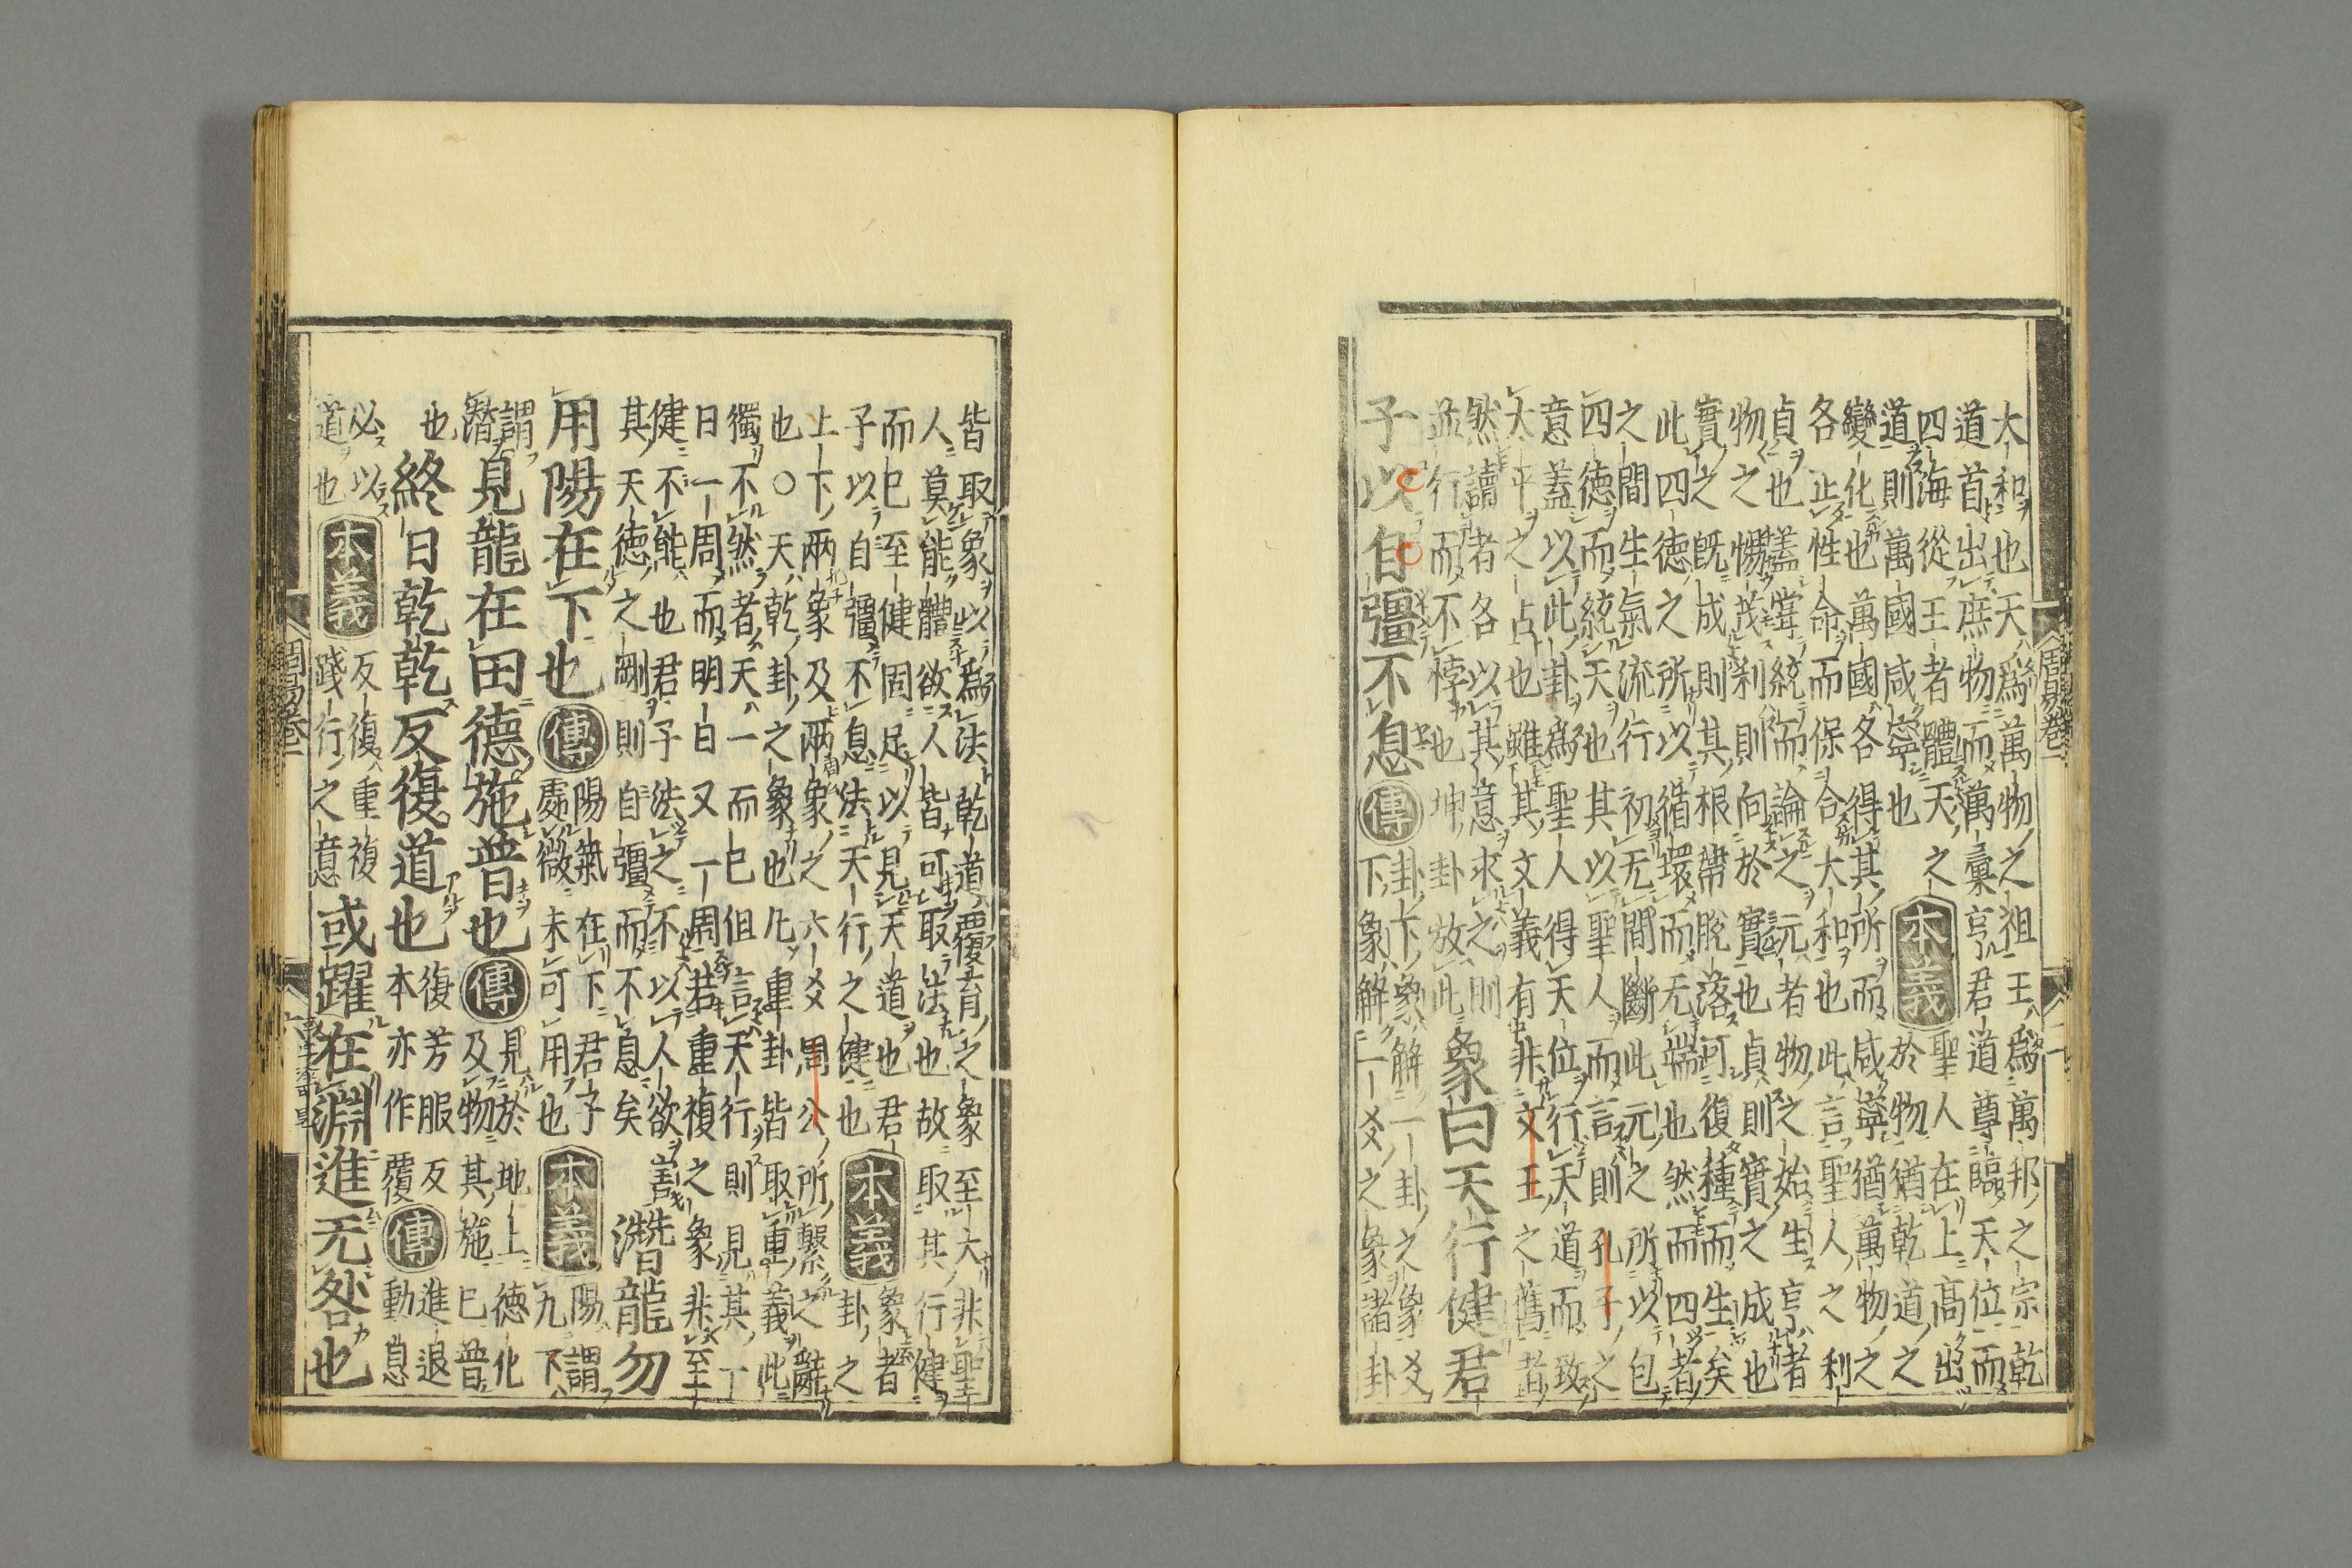 周易卷一
大和也天爲萬物之祖王爲萬邦之宗乾
道首出庶物而萬彙亨君道尊臨天位而
四海從王者體天之
道則萬國咸寧也
本義
聖人在上高出
於物猶乾道之
變化也萬國各得其所而咸寧猶萬物之
各正性命而保合大和也此言聖人之利
貞也蓋嘗統而論之元者物之始生亨者
物之暢茂利則向於實也貞則實之成也
實之既成則其根蔕脫落可復種而生矣
此四德之所以循環而无端也然而四者
之間生氣流行初无間斷此元之所以包
四德而統天也其以聖人而言則孔子之
意蓋以此卦爲聖人得天位行天道而致
太平之占也雖其文義有非文王之舊者
然讀者各以其意求之則
並行而不悖也坤卦放此
象曰天行健君
子以自彊不息
傳
卦下象解一卦之象爻
下象解一爻之象諸卦
皆取象以爲法乾道覆育之象至大非聖
人莫能體欲人皆可取法也故取其行健
而已至健固足以見天道也君
子以自彊不息法天行之健也
本義
象者
卦之
上下兩象及兩象之六爻周公所繫之辭
也〇天乾卦之象也凡重卦皆取重義此
獨不然者天一而已但言天行則見其一
日一周而明日又一周若重複之象非至
健不能也君子法之不以人欲害
其天德之剛則自彊而不息矣
潛龍勿
用陽在下也
傳
陽氣在下君子
處微未可用也
本義
陽謂
九下
謂
潛
見龍在田德施普也
傳
見於地上德化
及物其施已普
也
終日乾乾反復道也
復芳服反
本亦作覆
傳
進退
動息
必以
道也
本義
反復重複
踐行之意
或躍在淵進无咎也
周易卷一